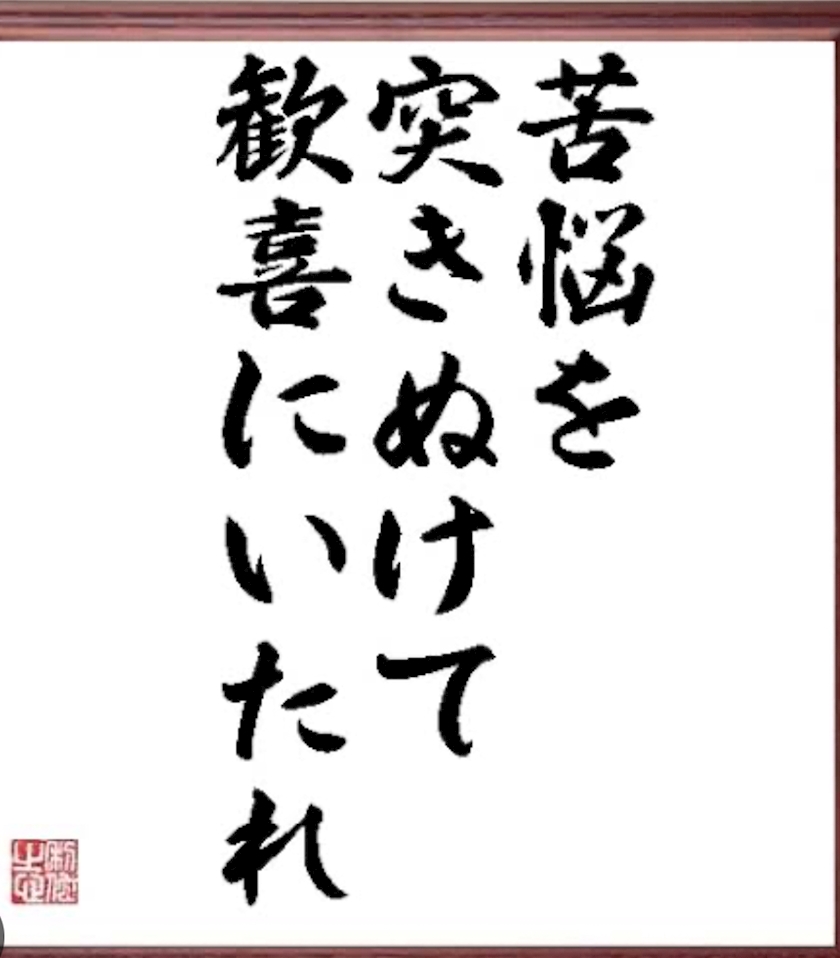 苦悩を
突きぬけて
歓喜にいたれ